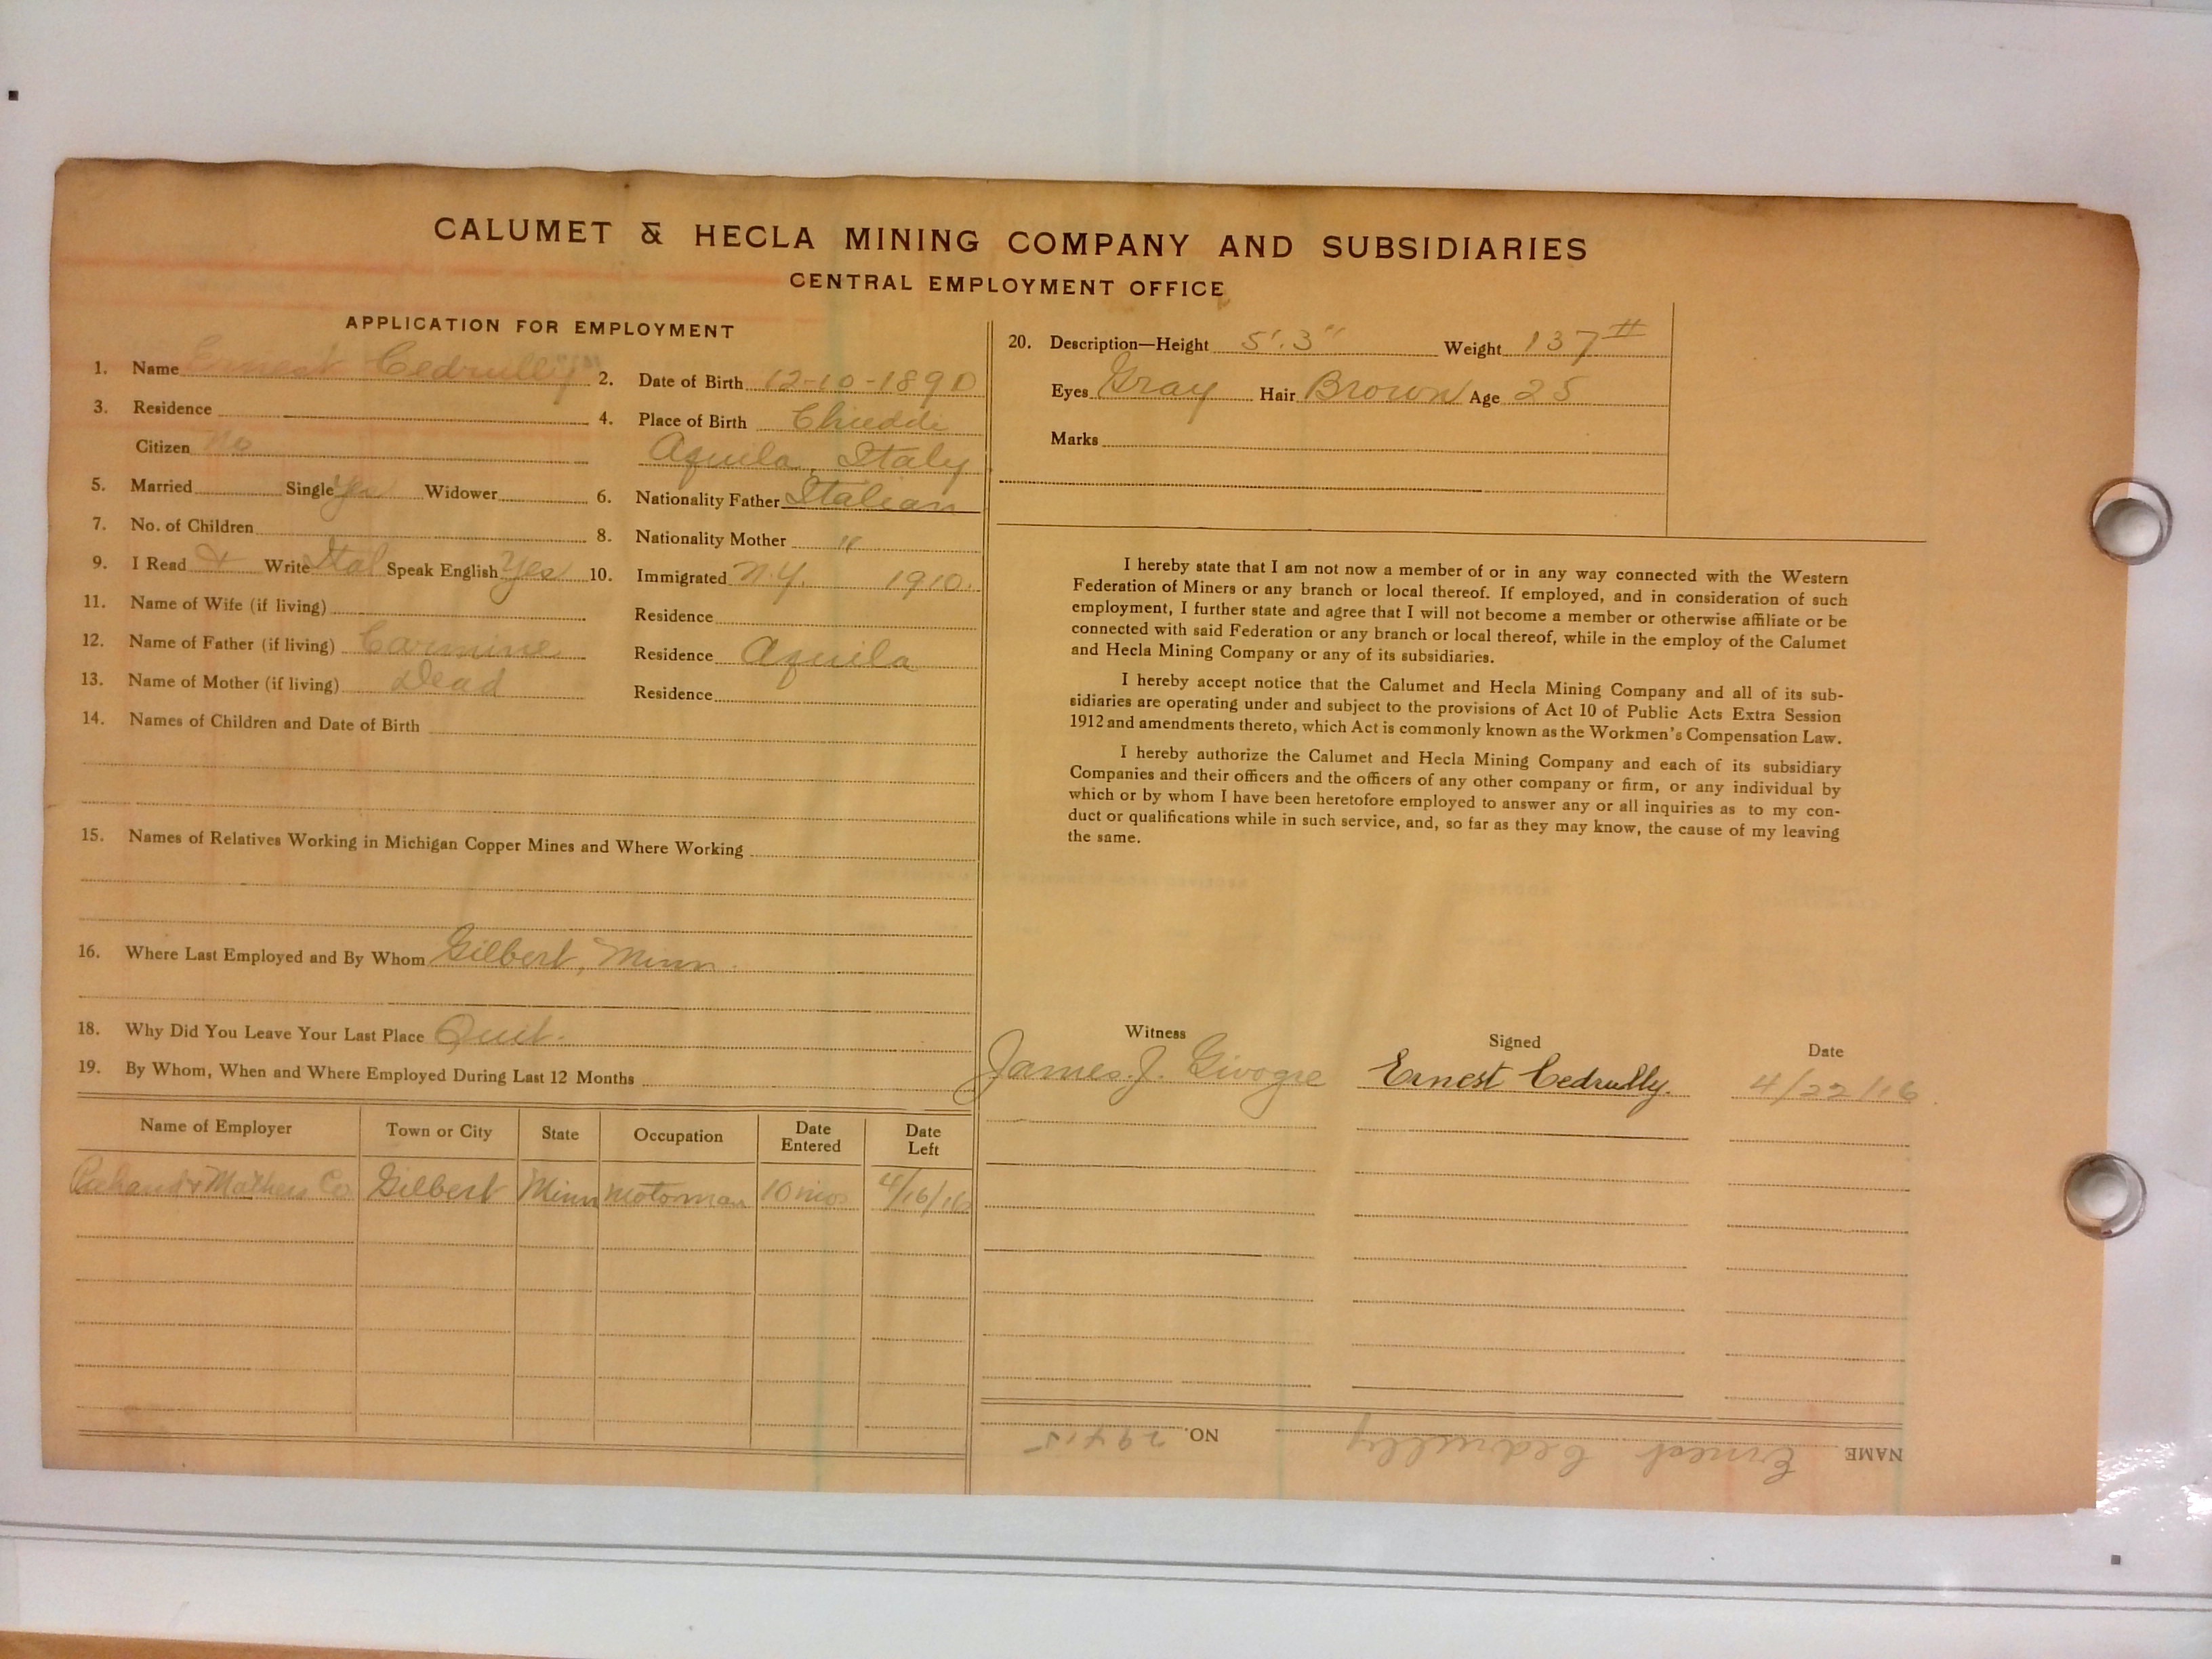 CALUMET & HECLA MINING COMPANY AND SUBSIDIARIES
CENTRAL EMPLOYMENT OFFICE
APPLICATION FOR EMPLOYMENT
1. Name Ernest Cedrully
2. Date of Birth 12-10-1890
3. Residence
4. Place of Birth Chieddi
Citizen No
Aquila, Italy
5. Married Single Yes Widower
6. Nationality Father Italian
7. No. of Children
8. Nationality Mother "
9. I Read & Write Ital Speak English Yes
10. Immigrated N.Y. 1910.
11. Name of Wife (if living) Residence
12. Name of Father (if living) Carmine Residence Aquila
13. Name of Mother (if living) Dead Residence
14. Names of Children and Date of Birth
15. Names of Relatives Working in Michigan Copper Mines and Where Working
16. Where Last Employed and By Whom Gilbert, Minn.
18. Why Did You Leave Your Last Place Quit.
19. By Whom, When and Where Employed During Last 12 Months
Name of Employer Town or City State Occupation Date Entered Date Left
Mathers Co Gilbert Minn motorman 10 mos 4/16/16
20. Description—Height 5'.3" Weight 137 #
Eyes Gray Hair Brown Age 25
Marks
I hereby state that I am not now a member of or in any way connected with the Western
Federation of Miners or any branch or local thereof. If employed, and in consideration of such
employment, I further state and agree that I will not become a member or otherwise affiliate or be
connected with said Federation or any branch or local thereof, while in the employ of the Calumet
and Hecla Mining Company or any of its subsidiaries.
I hereby accept notice that the Calumet and Hecla Mining Company and all of its sub-
sidiaries are operating under and subject to the provisions of Act 10 of Public Acts Extra Session
1912 and amendments thereto, which Act is commonly known as the Workmen's Compensation Law.
I hereby authorize the Calumet and Hecla Mining Company and each of its subsidiary
Companies and their officers and the officers of any other company or firm, or any individual by
which or by whom I have been heretofore employed to answer any or all inquiries as to my con-
duct or qualifications while in such service, and, so far as they may know, the cause of my leaving
the same.
Witness Signed Date
James. J. Givogre Ernest Cedrully. 4/22/16.
NAME Ernest Cedrully NO. 29415